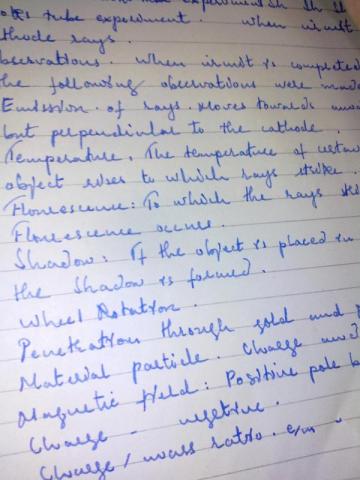 tube experiment. When
thode rays.
bservations. When is completed
the following observations were made
Emission of rays. moves towards
but perpendicular to the cathode.
Temperature. The temperature of
object rises to which rays strike.
Flourescence: To which the rays
Flourescence occurs.
Shadow: If the object is placed in
the Shadow is formed.
Wheel Rotation.
Penetration through gold and
Material particle. Charge and
Magnetic field: Positive pole
Charge - negetive.
Charge / mass ratio. e/m